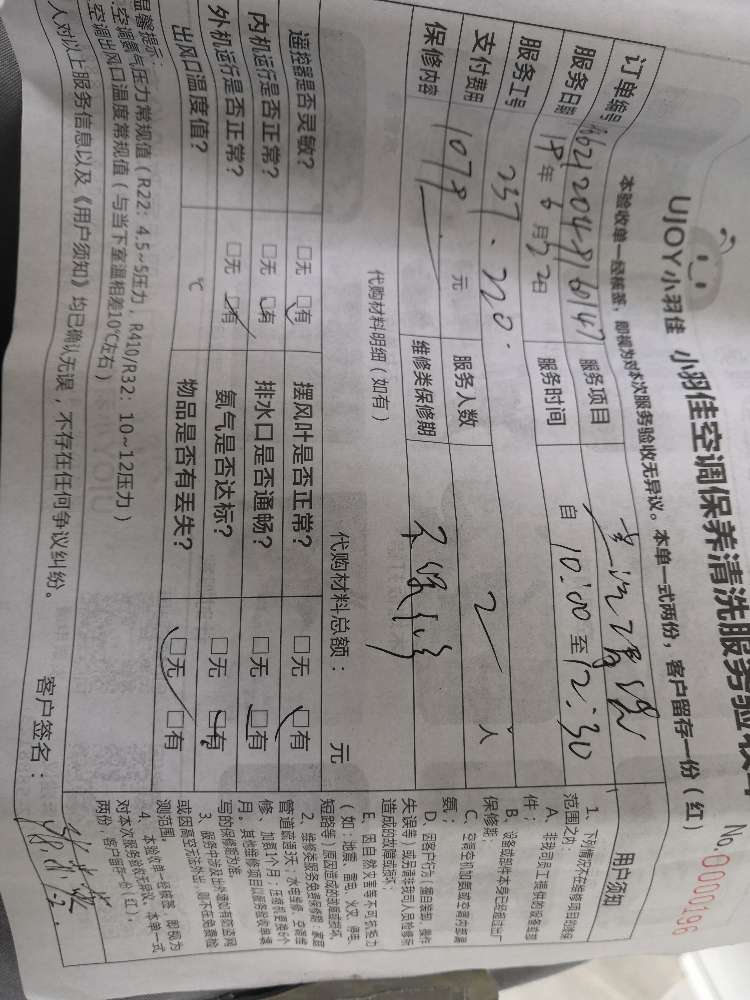 UJOY小羽佳 小羽佳空调保养清洗服务验收
No.0000196
本验收单一经核签，即视为对本次服务验收无异议。本单一式两份，客户留存一份（红）
订单编号
服务项目
服务日期 18年6月22日 服务时间 自10:00至12:30
服务工号 237.220.
服务人数 2人
支付费用 1079 元
保修内容
维修类保修期 不保修
代购材料明细（如有）
代购材料总额： 元
遥控器是否灵敏？ □无 □有 摆风叶是否正常？ □无 □有
内机运行是否正常？ □无 □有 排水口是否通畅？ □无 □有
外机运行是否正常？ □无 □有 氨气是否达标？ □无 □有
出风口温度值？ ℃ 物品是否有丢失？ □无 □有
温馨提示：
空调氨气压力常规值（R22：4.5~5压力，R410/R32：10~12压力）
空调出风口温度常规值（与当下室温相差10℃左右）
人对以上服务信息以及《用户须知》均已确认无误，不存在任何争议纠纷。
客户签名：
用户须知
1、下列情况不在维修项目的维保
范围之内：
A、非我司员工提供的设备或部
件；
B、设备或部件本身已经超过出厂
保修期；
C、空调空机加氨或充调内泄漏
氨；
D、因客户行为（擅自装卸、操作
失误等）或另请非我司人员检修所
造成的故障或损坏；
E、因自然灾害等不可抗拒力
（如：地震、雷电、火灾、停电、
短路等）原因造成的故障或损坏。
2、维修类服务免费保修期：家庭
管道疏通3天；水电维修、空调维
修、加氨1个月；压缩机更换6个
月。其他维修项目以服务验收单填
写的保修期为准。
3、服务中涉及出外墙如有防盗网
或因高空无法外出，则不在免费检
测范围。
4、本验收单一经核签，即视为
对本次服务验收无异议。本单一式
两份，客户留存一份（红）。